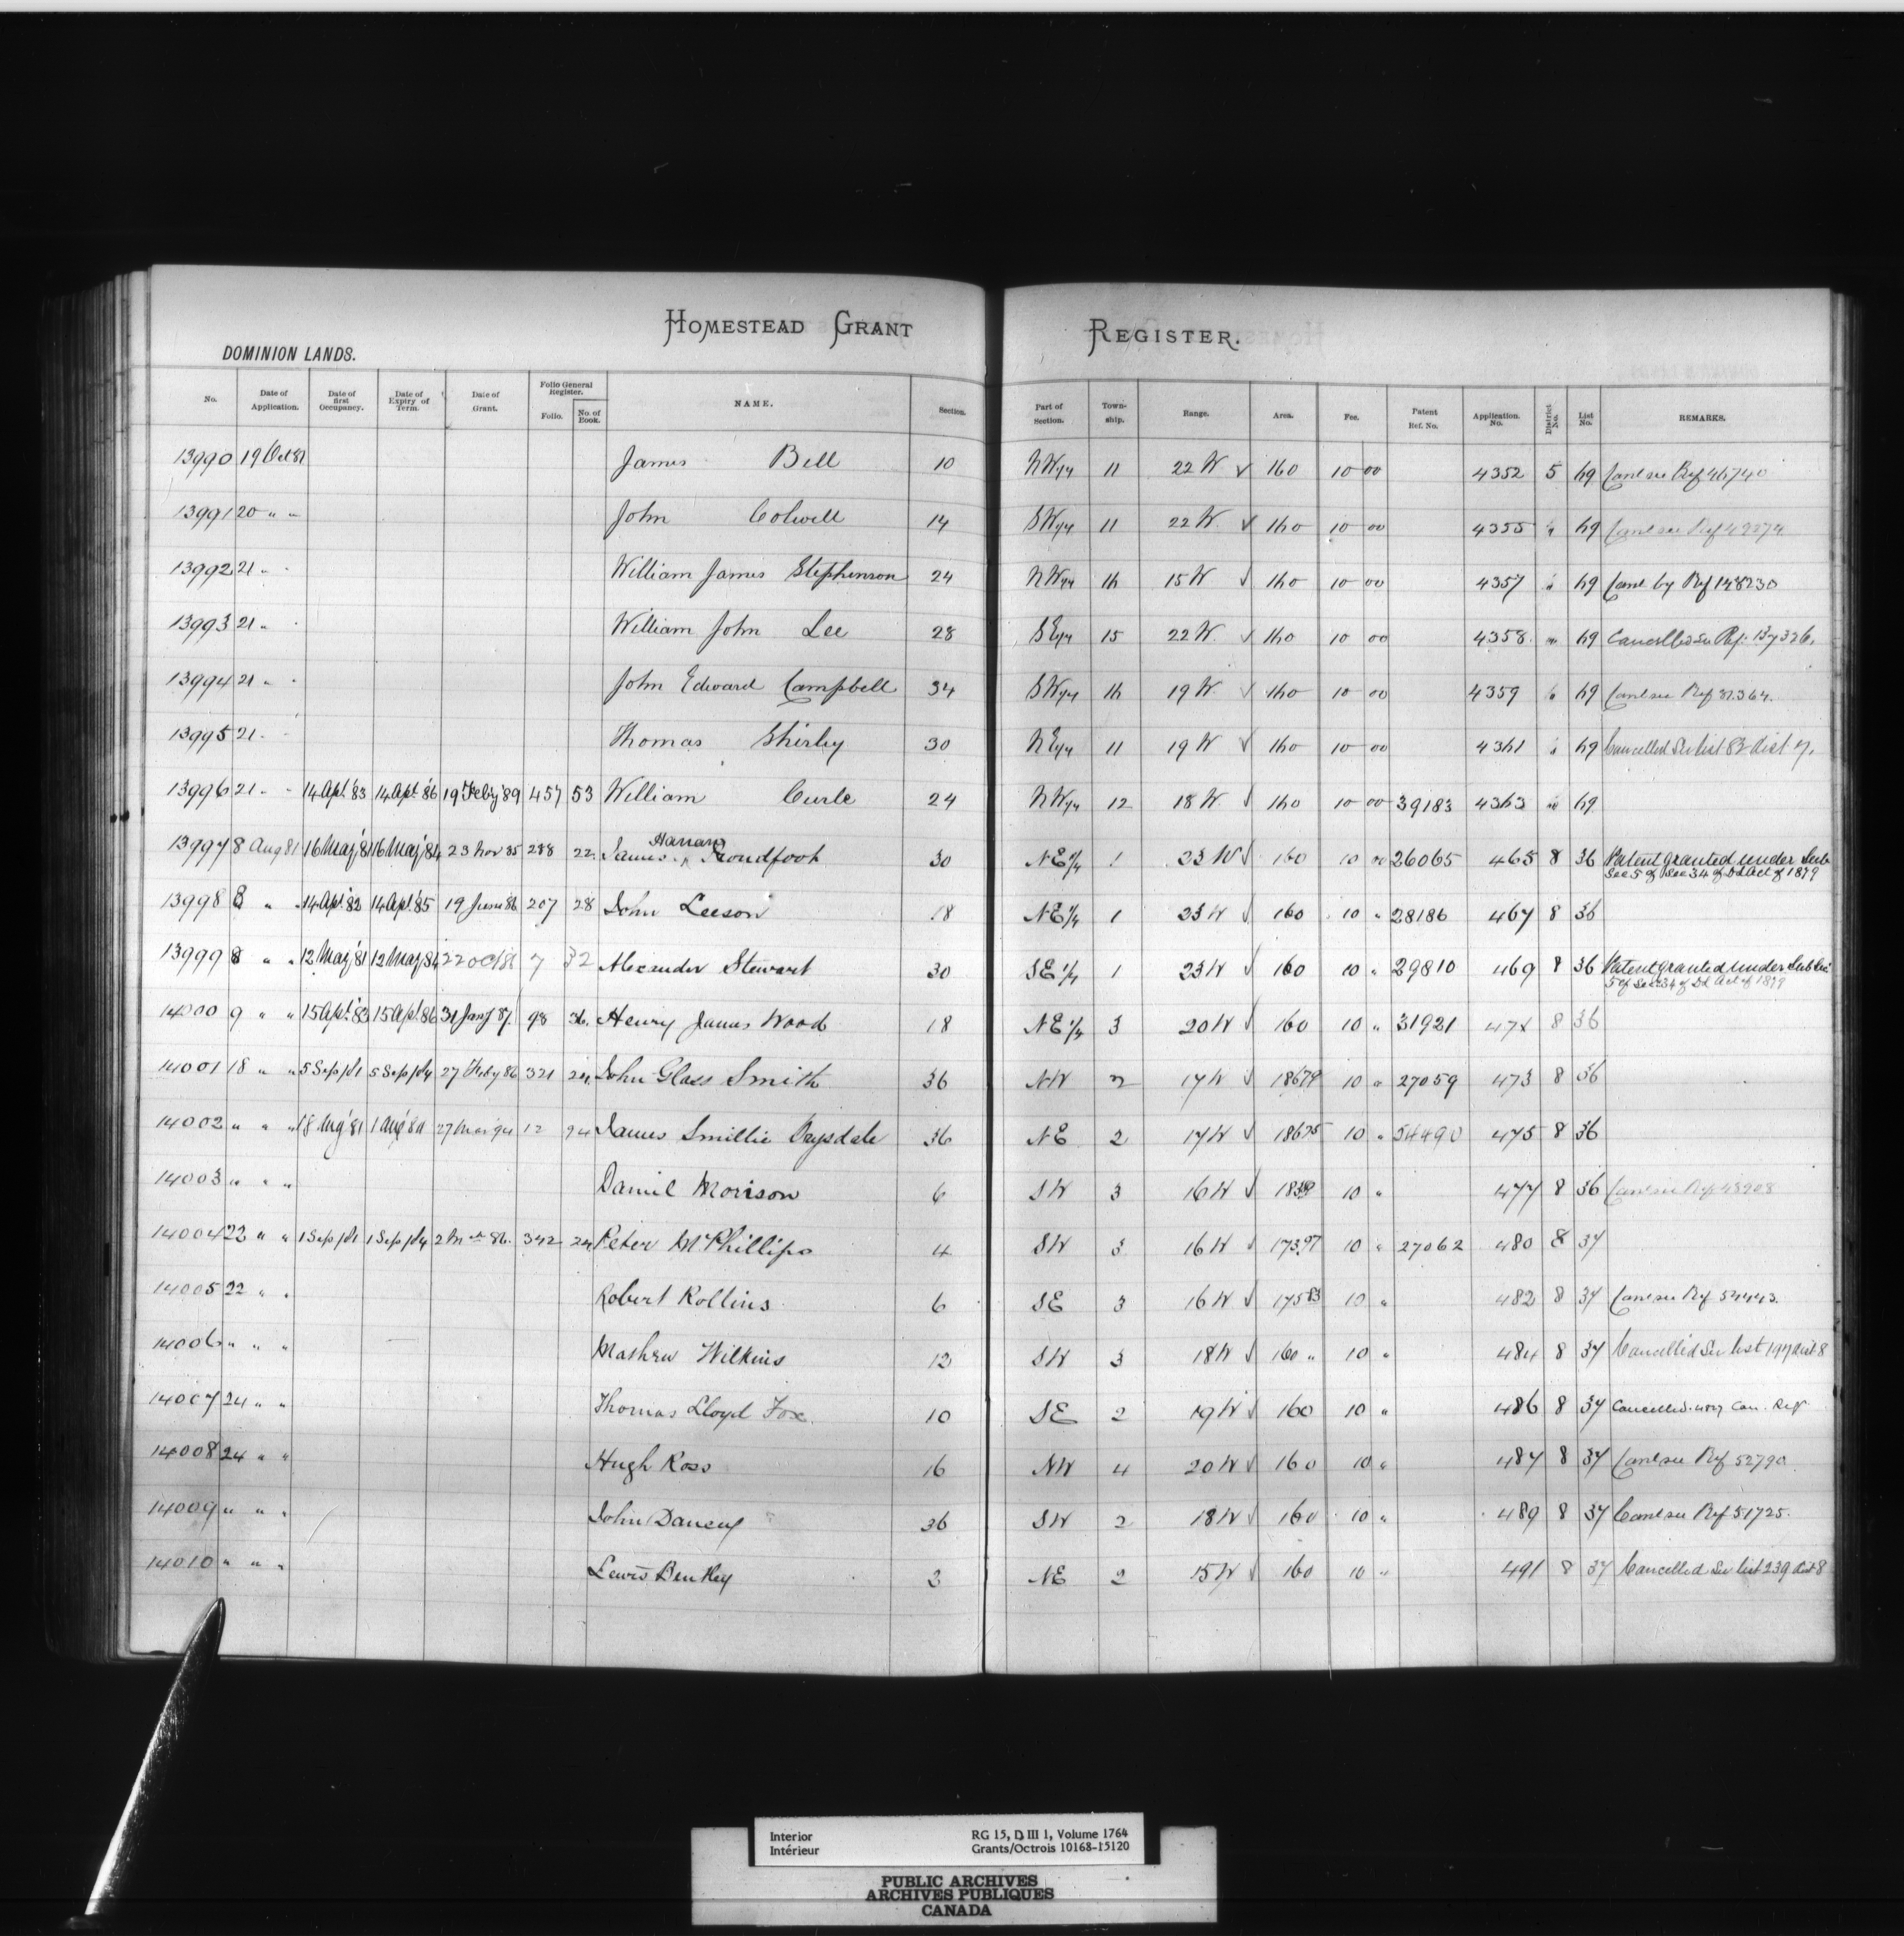 HOMESTEAD GRANT REGISTER.
DOMINION LANDS.
No. Date of Application. Date of first Occupancy. Date of Expiry of Term. Date of Grant. Folio General Register. Folio. No. of Book. NAME. Section. Part of Section. Town-ship. Range. Area. Fee. Patent Ref. No. Application. No. District No. List No. REMARKS.
13990 19 Oct 81 James Bell 10 NW 1/4 11 22 W ✓ 160 10 00 4352 5 69 Canl see Ref 46740
13991 20 " " John Colwell 14 SW 1/4 11 22 W. ✓ 160 10 00 4355 " 69 Canl see Ref 49274
13992 21 " " William James Stephenson 24 NW 1/4 16 15 W ✓ 160 10 00 4357 " 69 Canl by Ref 148230
13993 21 " " William John Lee 28 SE 1/4 15 22 W. ✓ 160 10 00 4358 " 69 Cancelled see Ref: 137326.
13994 21 " " John Edward Campbell 34 SW 1/4 16 19 W. ✓ 160 10 00 4359 " 69 Canl see Ref 31364.
13995 21 " " Thomas Shirley 30 NE 1/4 11 19 W ✓ 160 10 00 4361 " 69 Cancelled See list 82 dist 7.
13996 21 " " 14 Apl. '83 14 Apl. '86 19 Feby '89 457 53 William Curle 24 NW 1/4 12 18 W. ✓ 160 10 00 39183 4363 " 69
13997 8 Aug 81 16 May '81 16 May '84 23 Nov 85 288 22 James Proudfoot 30 NE 1/4 1 23 W ✓ 160 10 00 26065 465 8 36 Patent granted under Sub
Sec 5 of Sec 34 of D L Act of 1879
13998 8 " " 14 Apl '82 14 Apl. '85 19 June 86 207 28 John Leeson 18 NE 1/4 1 23 W ✓ 160 10 " 28186 467 8 36
13999 8 " " 12 May '81 12 May '84 22 Oct 86 7 32 Alexander Stewart 30 SE 1/4 1 23 W ✓ 160 10 " 29810 469 8 36 Patent granted under Sub Sec
5 of Sec 34 of D L Act of 1879
14000 9 " " 15 Apl. '83 15 Apl. '86 31 Jany 87. 98 36. Henry James Wood 18 NE 1/4 3 20 W ✓ 160 10 " 31921 471 8 36
14001 18 " " 5 Sep/81 5 Sep/84 27 Feby 86 321 24. John Glass Smith 36 NW 2 17 W ✓ 186.79 10 " 27059 473 8 36
14002 " " " 18 Aug '81 1 Aug '84 27 Mar 94 12 94 James Smillie Drysdale 36 NE 2 17 W ✓ 186.25 10 " 54490 475 8 36
14003 " " " Daniel Morison 6 SW 3 16 W ✓ 10 " 477 8 36 Canl see Ref 43908
14004 22 " " 1 Sep/81 1 Sep/84 2 Mch 86. 342 24 Peter McPhillips 4 SW 3 16 W ✓ 173.97 10 " 27062 480 8 37
14005 22 " " Robert Rollins 6 SE 3 16 W ✓ 175.83 10 " 482 8 37 Canl see Ref 54443.
14006 " " " Mathew Wilkins 12 SW 3 18 W ✓ 160 " 10 " 484 8 37 Cancelled See list 197 dist 8
14007 24 " " Thomas Lloyd Fox. 10 SE 2 19 W ✓ 160 10 " 486 8 37 Cancelled. Can. Ref
14008 24 " " Hugh Ross 16 NW 4 20 W ✓ 160 10 " 487 8 37 Canl see Ref 52790
14009 " " " John Dancey 36 SW 2 18 W ✓ 160 10 " 489 8 37 Canl see Ref 51725.
14010 " " " Lewis Bentley 2 NE 2 15 W ✓ 160 10 " 491 8 37 Cancelled See list 239 dist 8
Interior RG 15, D III 1, Volume 1764
Intérieur Grants/Octrois 10168-15120
PUBLIC ARCHIVES
ARCHIVES PUBLIQUES
CANADA